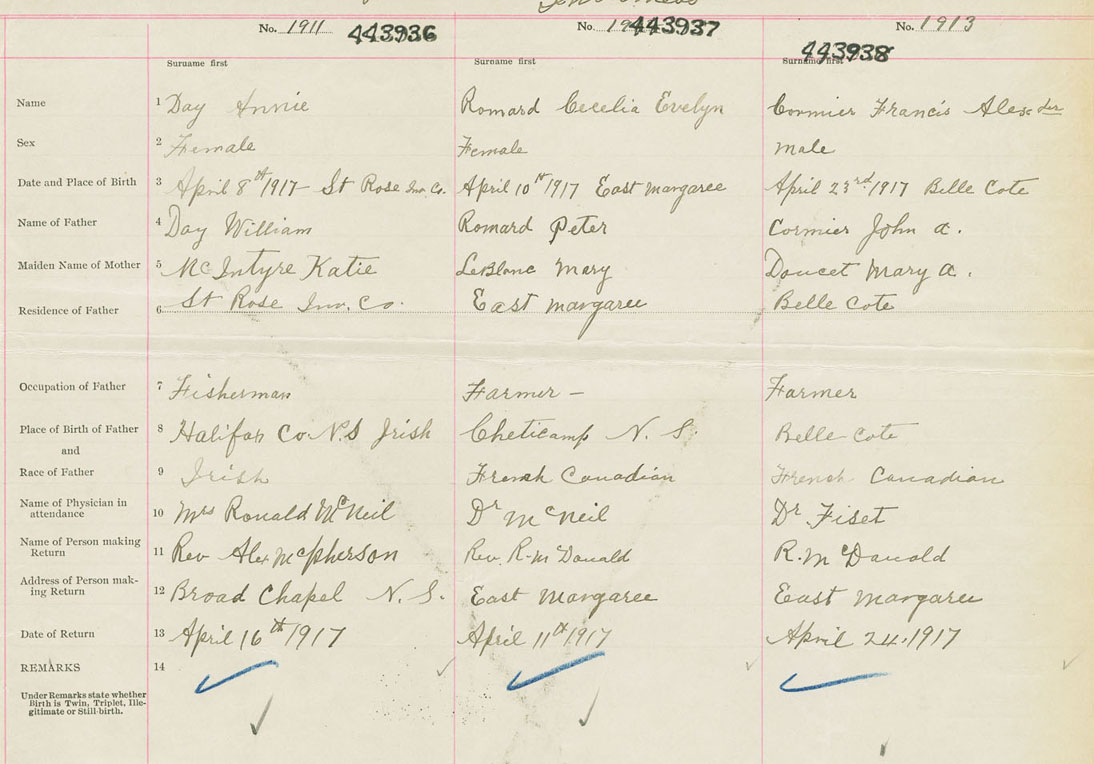 No. 1911 443936 No. 19 443937 No. 1913 443938
Surname first Surname first Surname first
Name 1 Day Annie Romard Cecelia Evelyn Cormier Francis Alexder
Sex 2 Female Female Male
Date and Place of Birth 3 April 8th 1917 - St Rose Inv. Co. April 10th 1917 East Margaree April 23rd 1917 Belle Cote
Name of Father 4 Day William Romard Peter Cormier John A.
Maiden Name of Mother 5 McIntyre Katie LeBlanc Mary Doucet Mary A.
Residence of Father 6 St Rose Inv. Co. East Margaree Belle Cote
Occupation of Father 7 Fisherman Farmer - Farmer
Place of Birth of Father 8 Halifax Co. N.S Irish Cheticamp N. S. Belle Cote
and
Race of Father 9 Irish French Canadian French Canadian
Name of Physician in
attendance 10 Mrs Ronald McNeil Dr McNeil Dr Fiset
Name of Person making
Return 11 Rev Alex McPherson Rev. R. McDonald R. McDonald
Address of Person mak-
ing Return 12 Broad Chapel N. S. East Margaree East Margaree
Date of Return 13 April 16th 1917 April 11th 1917 April 24. 1917
REMARKS 14
Under Remarks state whether
Birth is Twin, Triplet, Ille-
gitimate or Still-birth.